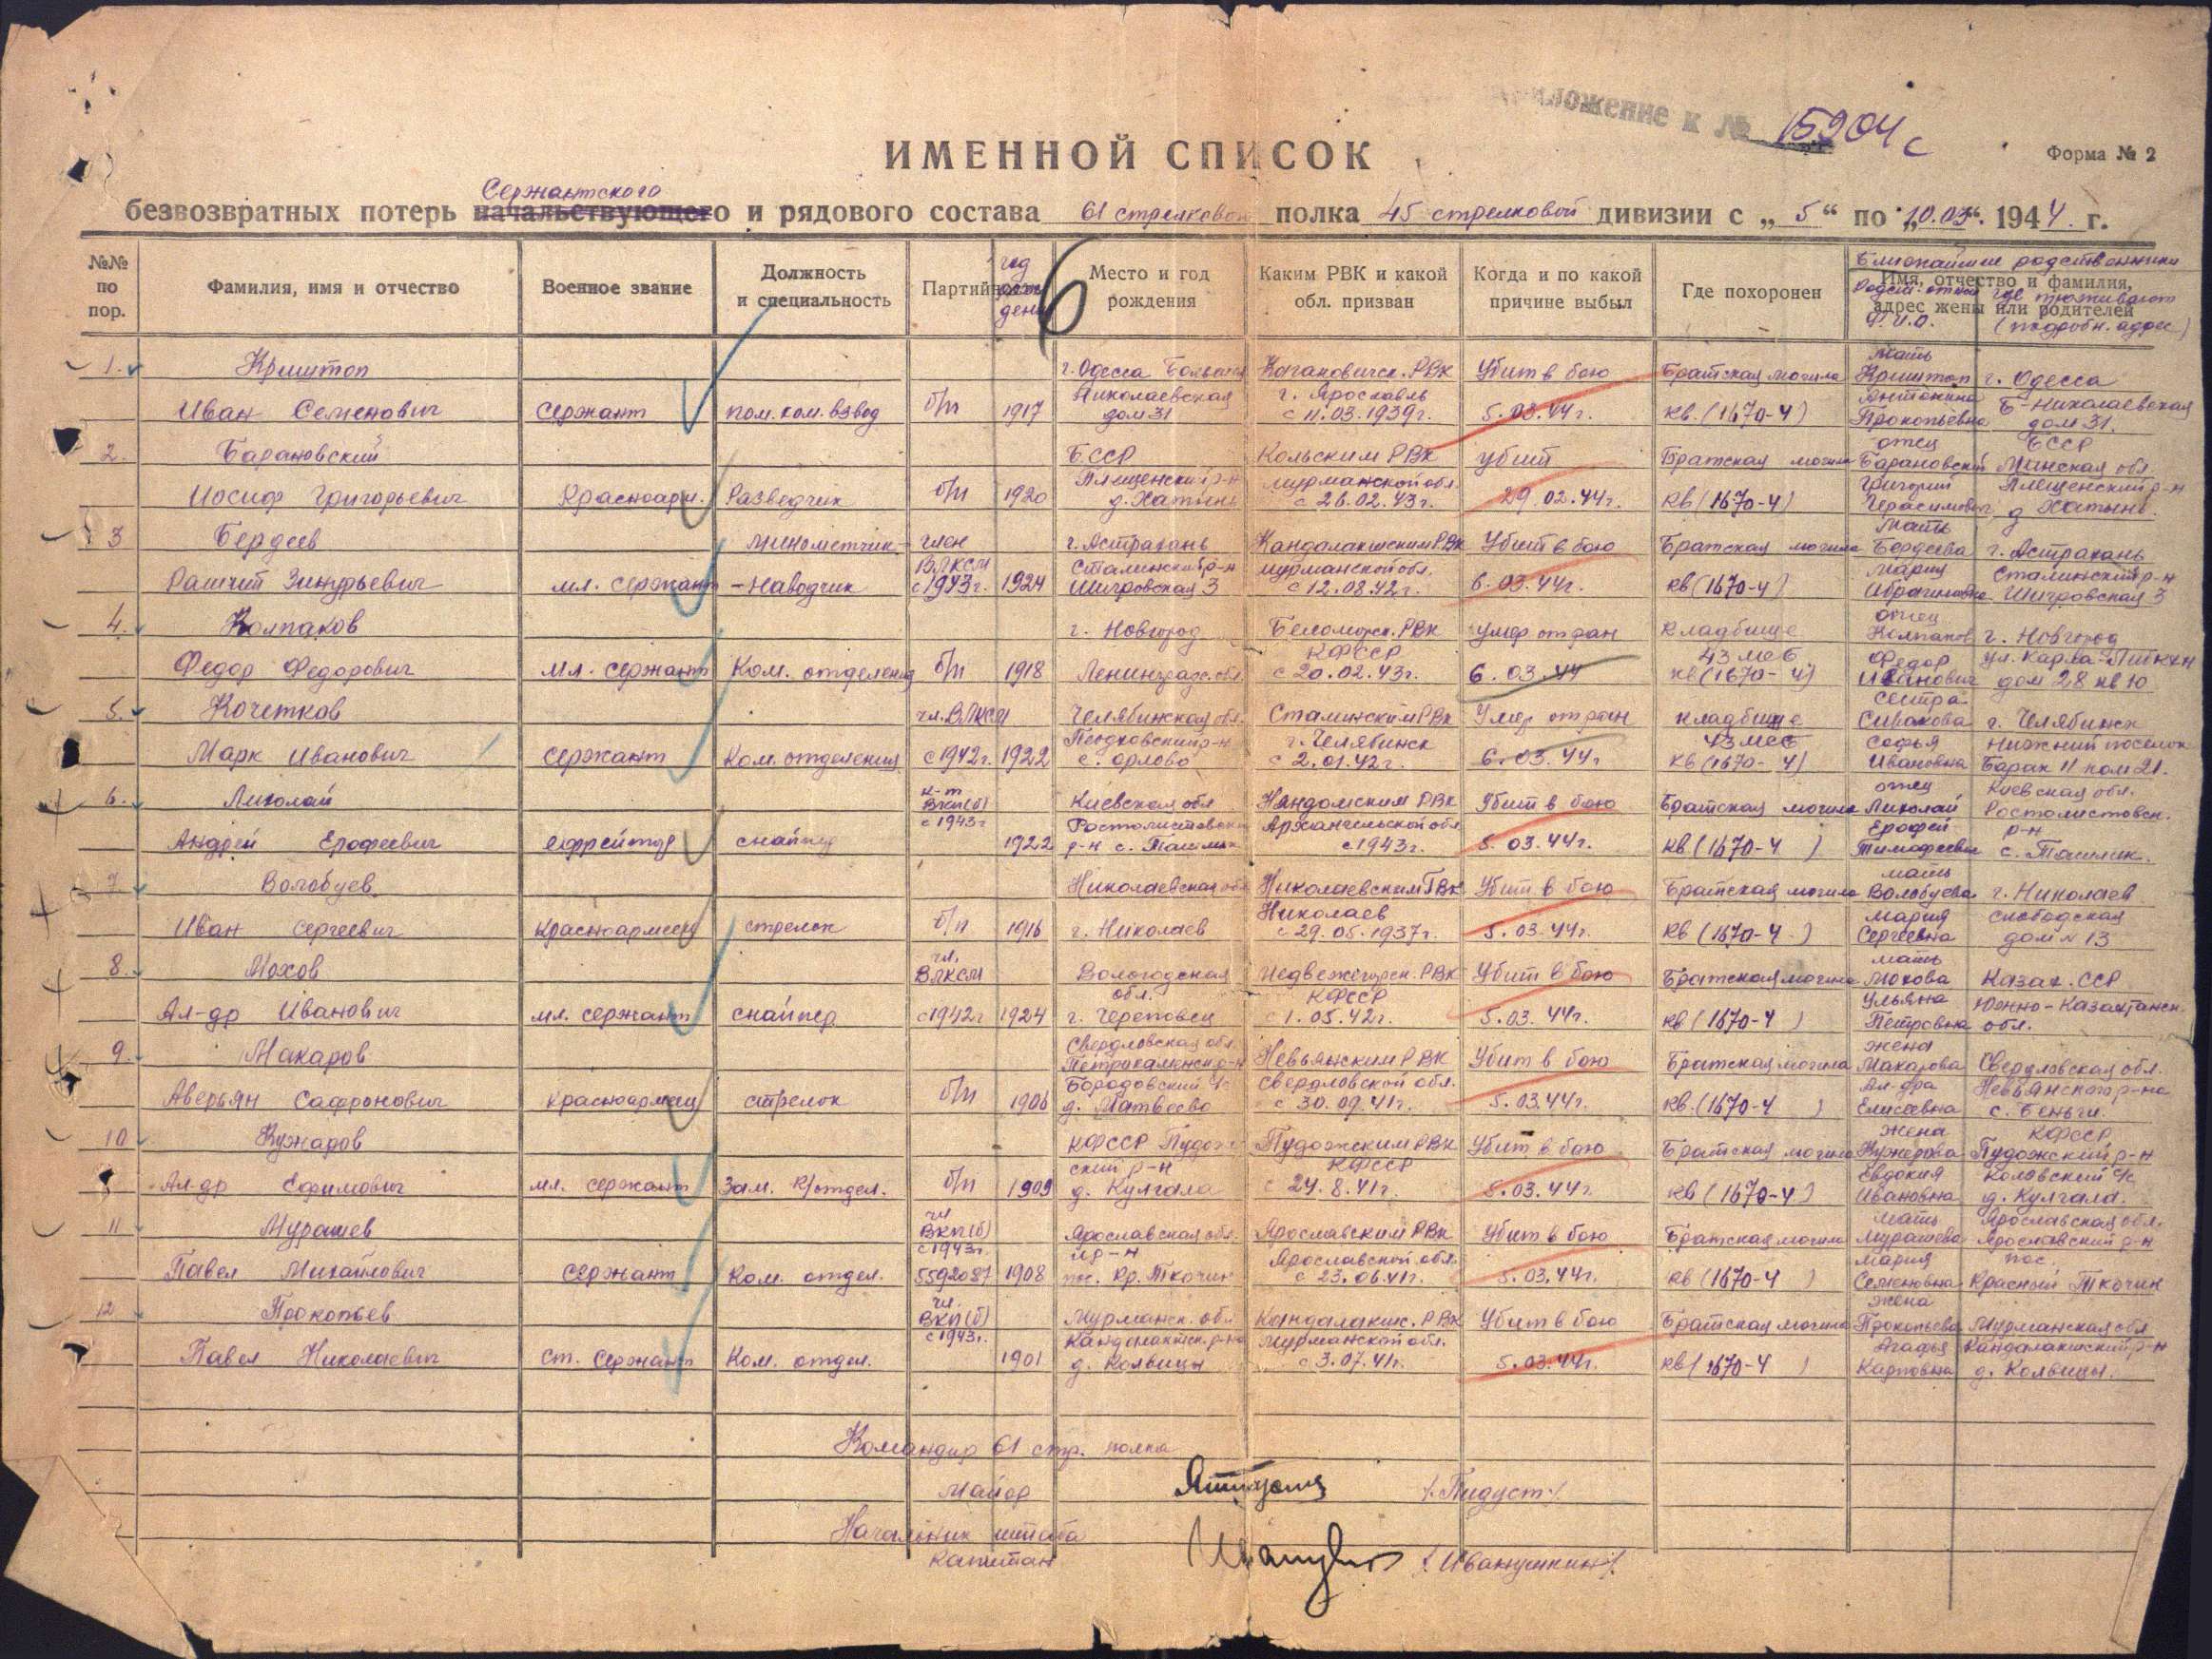 Приложение к № 15904с
ИМЕННОЙ СПИСОК
Форма № 2
Сержантского
безвозвратных потерь начальствующего и рядового состава 61 стрелковой полка 45 стрелковой дивизии с „5“ по „10.03“. 1944 г.
№№ по пор.
Фамилия, имя и отчество
Военное звание
Должность и специальность
Партийность
год рождения
6
Место и год рождения
Каким РВК и какой обл. призван
Когда и по какой причине выбыл
Где похоронен
Ближайшие родственники
Имя, отчество и фамилия, адрес жены или родителей
Ф.И.О.
где проживают (подробн. адрес)
1. Криштоп г. Одесса Большая Кагановическ. РВК Убит в бою Братская могила Мать Криштоп г. Одесса
Иван Семенович сержант пом. ком. взвод б/п 1917 Николаевская дом 31 г. Ярославль с 11.03.1939г. 5.03.44г. кв. (1670-4) Антонина Прокопьевна Б-Николаевская дом 31.
2. Барановский БССР Кольским РВК убит Братская могила отец Барановский БССР Минская обл.
Иосиф Григорьевич Красноарм. Разведчик б/п 1920 Плещенский р-н д. Хатынь Мурманской обл. с 26.02.43г. 29.02.44г. кв (1670-4) Григорий Герасимович Плещенский р-н д Хатынь.
3 Бердеев минометчик член г. Астрахань Кандалакшским РВК Убит в бою Братская могила Мать Бердеева г. Астрахань
мл. сержант -наводчик ВЛКСМ с 1943г. 1924 Сталинский р-н 3 Мурманской обл. с 12.08.42г. 6.03.44г. кв (1670-4) Мария Сталинский р-н 3
4. Колпаков г. Новгород Беломорск. РВК умер от ран кладбище отец Колпаков г. Новгород
Федор Федорович мл. сержант Ком. отделения б/п 1918 Ленинградс. обл. КФССР с 20.02.43г. 6.03.44 43 МСБ кв (1670-4) Федор Иванович дом 28 кв 10
5. Кочетков чл. ВЛКСМ Челябинская обл. Сталинским РВк Умер от ран кладбище сестра г. Челябинск
Марк Иванович сержант Ком. отделения с 1942г. 1922 с. Орлово г. Челябинск с 2.01.42г. 6.03.44г 43 МСБ кв (1670-4) Софья Ивановна Нижний поселок Барак 11 ком 21.
6. Николай к-т ВКП(б) Киевская обл Няндомским РВк Убит в бою Братская могила отец Николай Киевская обл.
Андрей Ерофеевич ефрейтор снайпер с 1943г 1922 р-н с. Ташлык Архангельской обл с 1943г. 5.03.44г. кв (1670-4) Ерофей Тимофеевич р-н с. Ташлык.
7 Волобуев Николаевская обл Николаевским ГВК Убит в бою Братская могила мать Волобуева г. Николаев
Иван Сергеевич красноармеец стрелок б/п 1916 г. Николаев Николаев с 29.05.1937г. 5.03.44г. кв (1670-4) Мария Сергеевна Слободская дом № 13
8. Мохов чл. ВЛКСМ Вологодская обл. Медвежегорск. РВК Убит в бою Братская могила мать Мохова Казах. ССР
Ал-др Иванович мл. сержант снайпер с 1942г 1924 г. Череповец КФССР с 1.05.42г. 5.03.44г. кв (1670-4) Ульяна Петровна Южно-Казахстанск. обл.
9. Макаров Свердловская обл. Петрокаменск. р-н Невьянским РВК Убит в бою Братская могила жена Макарова Свердловская обл.
Аверьян Сафронович красноармеец стрелок б/п 1906 Бородовский с/с д. Матвеево Свердловской обл. с 30.09.41г. 5.03.44г. кв. (1670-4) Ал-дра Елисеевна Невьянского р-на с. Беньги.
10 Кужаров КФССР Пудожский р-н Пудожским РВК Убит в бою Братская могила жена Кужарова КФССР Пудожский р-н
Ал-др Ефимович мл. сержант Зам. к/отдел. б/п 1909 д. Кулгала КФССР с 24.8.41г. 5.03.44г. кв (1670-4) Евдокия Ивановна с/с д. Кулгала.
11 Мурашев чл ВКП(б) Ярославская обл. Ярославским РВк Убит в бою Братская могила Мать Мурашева Ярославская обл. Ярославский р-н
Павел Михайлович сержант Ком. отдел. с 1943г. 5592087 1908 пос. Кр. Ткачи Ярославской обл. с 23.06.41г. 5.03.44г. кв (1670-4) Мария Семеновна пос. Красный Ткачик
12 Прокопьев чл. ВКП(б) Мурманск. обл Кандалакшс. РВК Убит в бою Братская могила жена Прокопьева Мурманская обл
Павел Николаевич ст. сержант Ком. отдел. с 1943г. 1901 Кандалакшск. р-на д. Колвицы Мурманской обл. с 3.07.41г. 5.03.44г. кв (1670-4) Агафья Карповна Кандалакшский р-н д. Колвицы.
Командир 61 стр. полка
Майор /Пидуст/
Начальник штаба
капитан /Иванушкин/